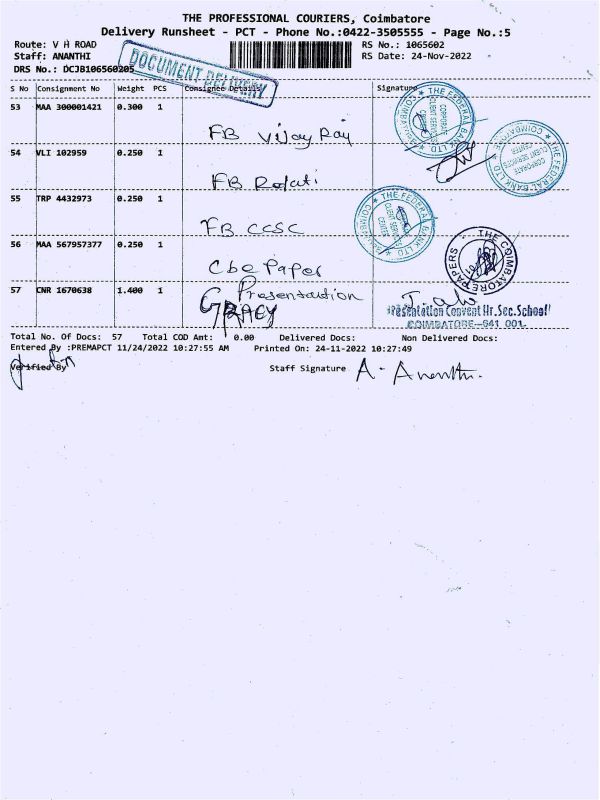 THE PROFESSIONAL COURIERS, Coimbatore
Delivery Runsheet - PCT - Phone No.:0422-3505555 - Page No.:5
Route: V H ROAD RS No.: 1065602
Staff: ANANTHI RS Date: 24-Nov-2022
DRS No.: DCJB106560205
DOCUMENT DELIVERY
S No Consignment No Weight PCS Consignee Details Signature
53 MAA 300001421 0.300 1
FB Vijay Raj
THE FEDERAL BANK LTD COIMBATORE
CORPORATE CLIENT SERVICES CENTER
54 VLI 102959 0.250 1
THE FEDERAL BANK LTD COIMBATORE
CORPORATE CLIENT SERVICES CENTER
FB
55 TRP 4432973 0.250 1
THE FEDERAL BANK LTD COIMBATORE
CLIENT SERVICES
FB CCSC
56 MAA 567957377 0.250 1
THE COIMBATORE PAPERS
Cbe Paper
57 CNR 1670638 1.400 1
Presentation
Presentation Convent Hr.Sec.School
COIMBATORE-641 001.
Total No. Of Docs: 57 Total COD Amt: 0.00 Delivered Docs: Non Delivered Docs:
Entered By :PREMAPCT 11/24/2022 10:27:55 AM Printed On: 24-11-2022 10:27:49
Verified By Staff Signature A. Ananthi.